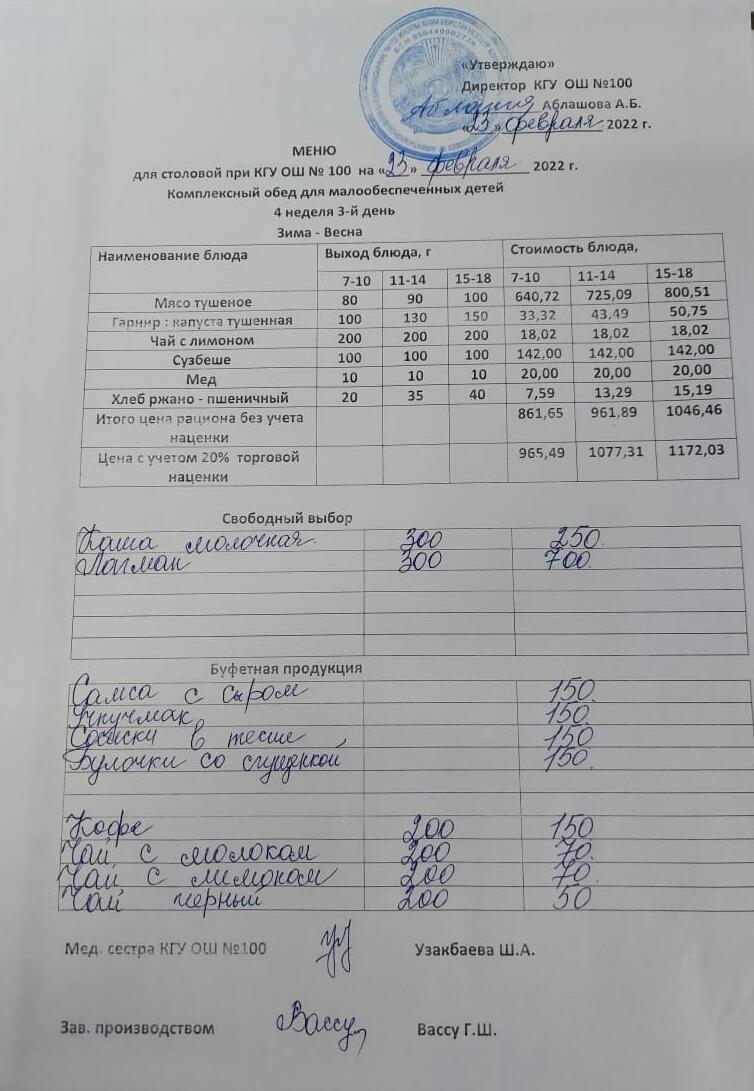 «Утверждаю»
Директор КГУ ОШ №100
Аблашова А.Б.
«23» февраля 2022 г.
МЕНЮ
для столовой при КГУ ОШ № 100 на «23» февраля 2022 г.
Комплексный обед для малообеспеченных детей
4 неделя 3-й день
Зима - Весна
Наименование блюда Выход блюда, г Стоимость блюда,
7-10 11-14 15-18 7-10 11-14 15-18
Мясо тушеное 80 90 100 640,72 725,09 800,51
Гарнир : капуста тушенная 100 130 150 33,32 43,49 50,75
Чай с лимоном 200 200 200 18,02 18,02 18,02
Сузбеше 100 100 100 142,00 142,00 142,00
Мед 10 10 10 20,00 20,00 20,00
Хлеб ржано - пшеничный 20 35 40 7,59 13,29 15,19
Итого цена рациона без учета 861,65 961,89 1046,46
наценки
Цена с учетом 20% торговой 965,49 1077,31 1172,03
наценки
Свободный выбор
Каша молочная 300 250
Лагман 300 700
Буфетная продукция
Самса с сыром 150
150
Сосиски в тесте 150
Булочки со сгущенкой 150
Кофе 200 150
Чай с молоком 200 70
Чай с лимоном 200 70
Чай черный 200 50
Мед. сестра КГУ ОШ №100 Узакбаева Ш.А.
Зав. производством Вассу Вассу Г.Ш.